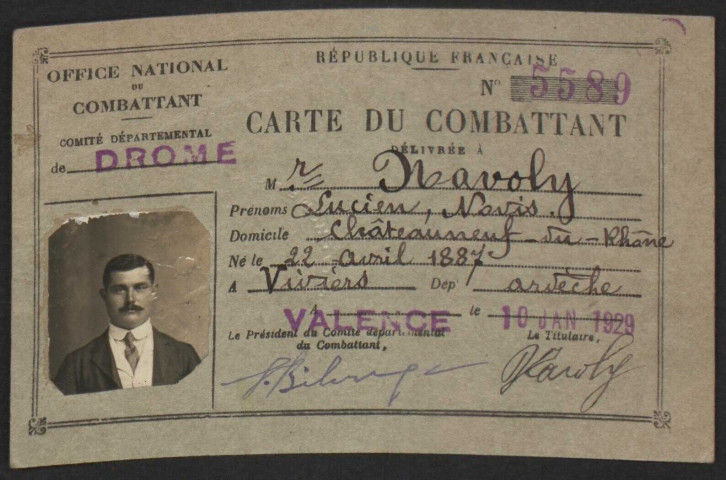 OFFICE NATIONAL
DU
COMBATTANT
COMITÉ DÉPARTEMENTAL
de DROME
RÉPUBLIQUE FRANÇAISE
N° 5589
CARTE DU COMBATTANT
DÉLIVRÉE À
M r Navoly
Prénoms Lucien, Novis.
Domicile Châteauneuf-du-Rhône
Né le 22 avril 1887
A Viviers Dép ardèche
à VALENCE le 10 JAN 1929
Le Président du Comité départemental
du Combattant,
Le Titulaire,
Navoly